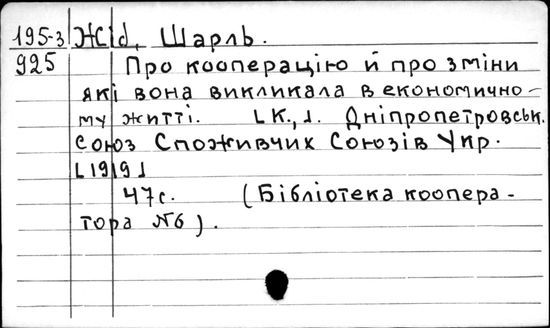 195-3 Жід, Шарль.
925 Про кооперацію й про зміни
які вона викликала в економично-
му житті. [К., ]. Дніпропетровськ.
Союз Споживчих Союзів Укр.
[1919]
47с. (Бібліотека коопера-
тора №6).